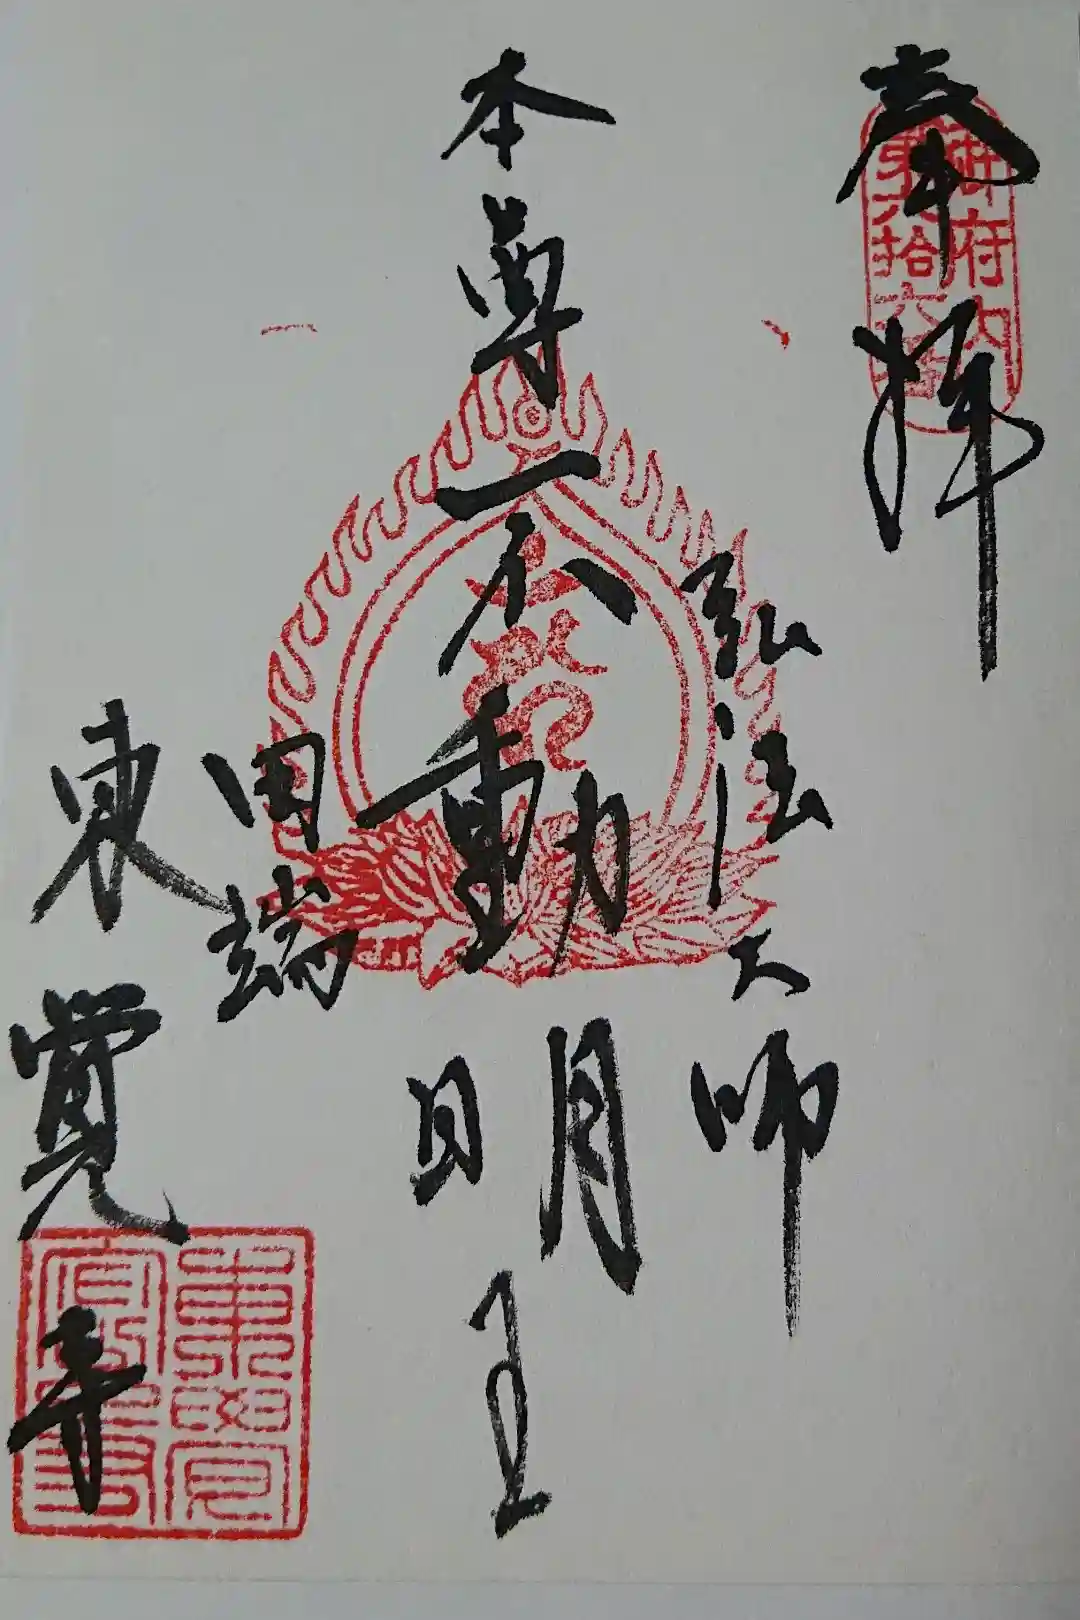 奉拝
御府内
第六拾六番
弘法大師
本尊不動明王
田端
東覺寺
東覺
寺